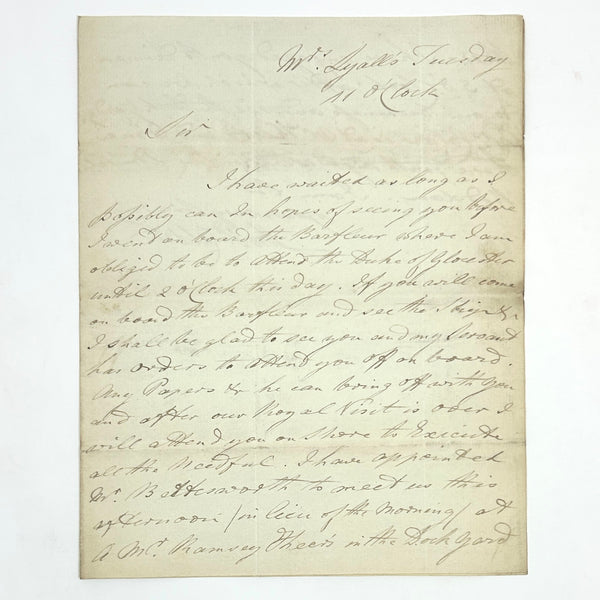 Mrs. Lyall's Tuesday
11 O'Clock
Sir
I have waited as long as I
possibly can In hopes of seeing you before
I went on board the Barfleur where I am
obliged to be to attend the Duke of Glocester
until 2 O'Clock this day. If you will come
on board the Barfleur and see the Ship &c
I shall be glad to see you and my Servant
has orders to attend you off on board.
Any Papers &c he can bring off with you
and after our Royal Visit is over I
will attend you on Shore to Execute
all the Needful. I have appointed
Mr. Bettesworth to meet us this
afternoon /in lieu of the Morning/ at
a Mr. Ramsey in the Dock Yard